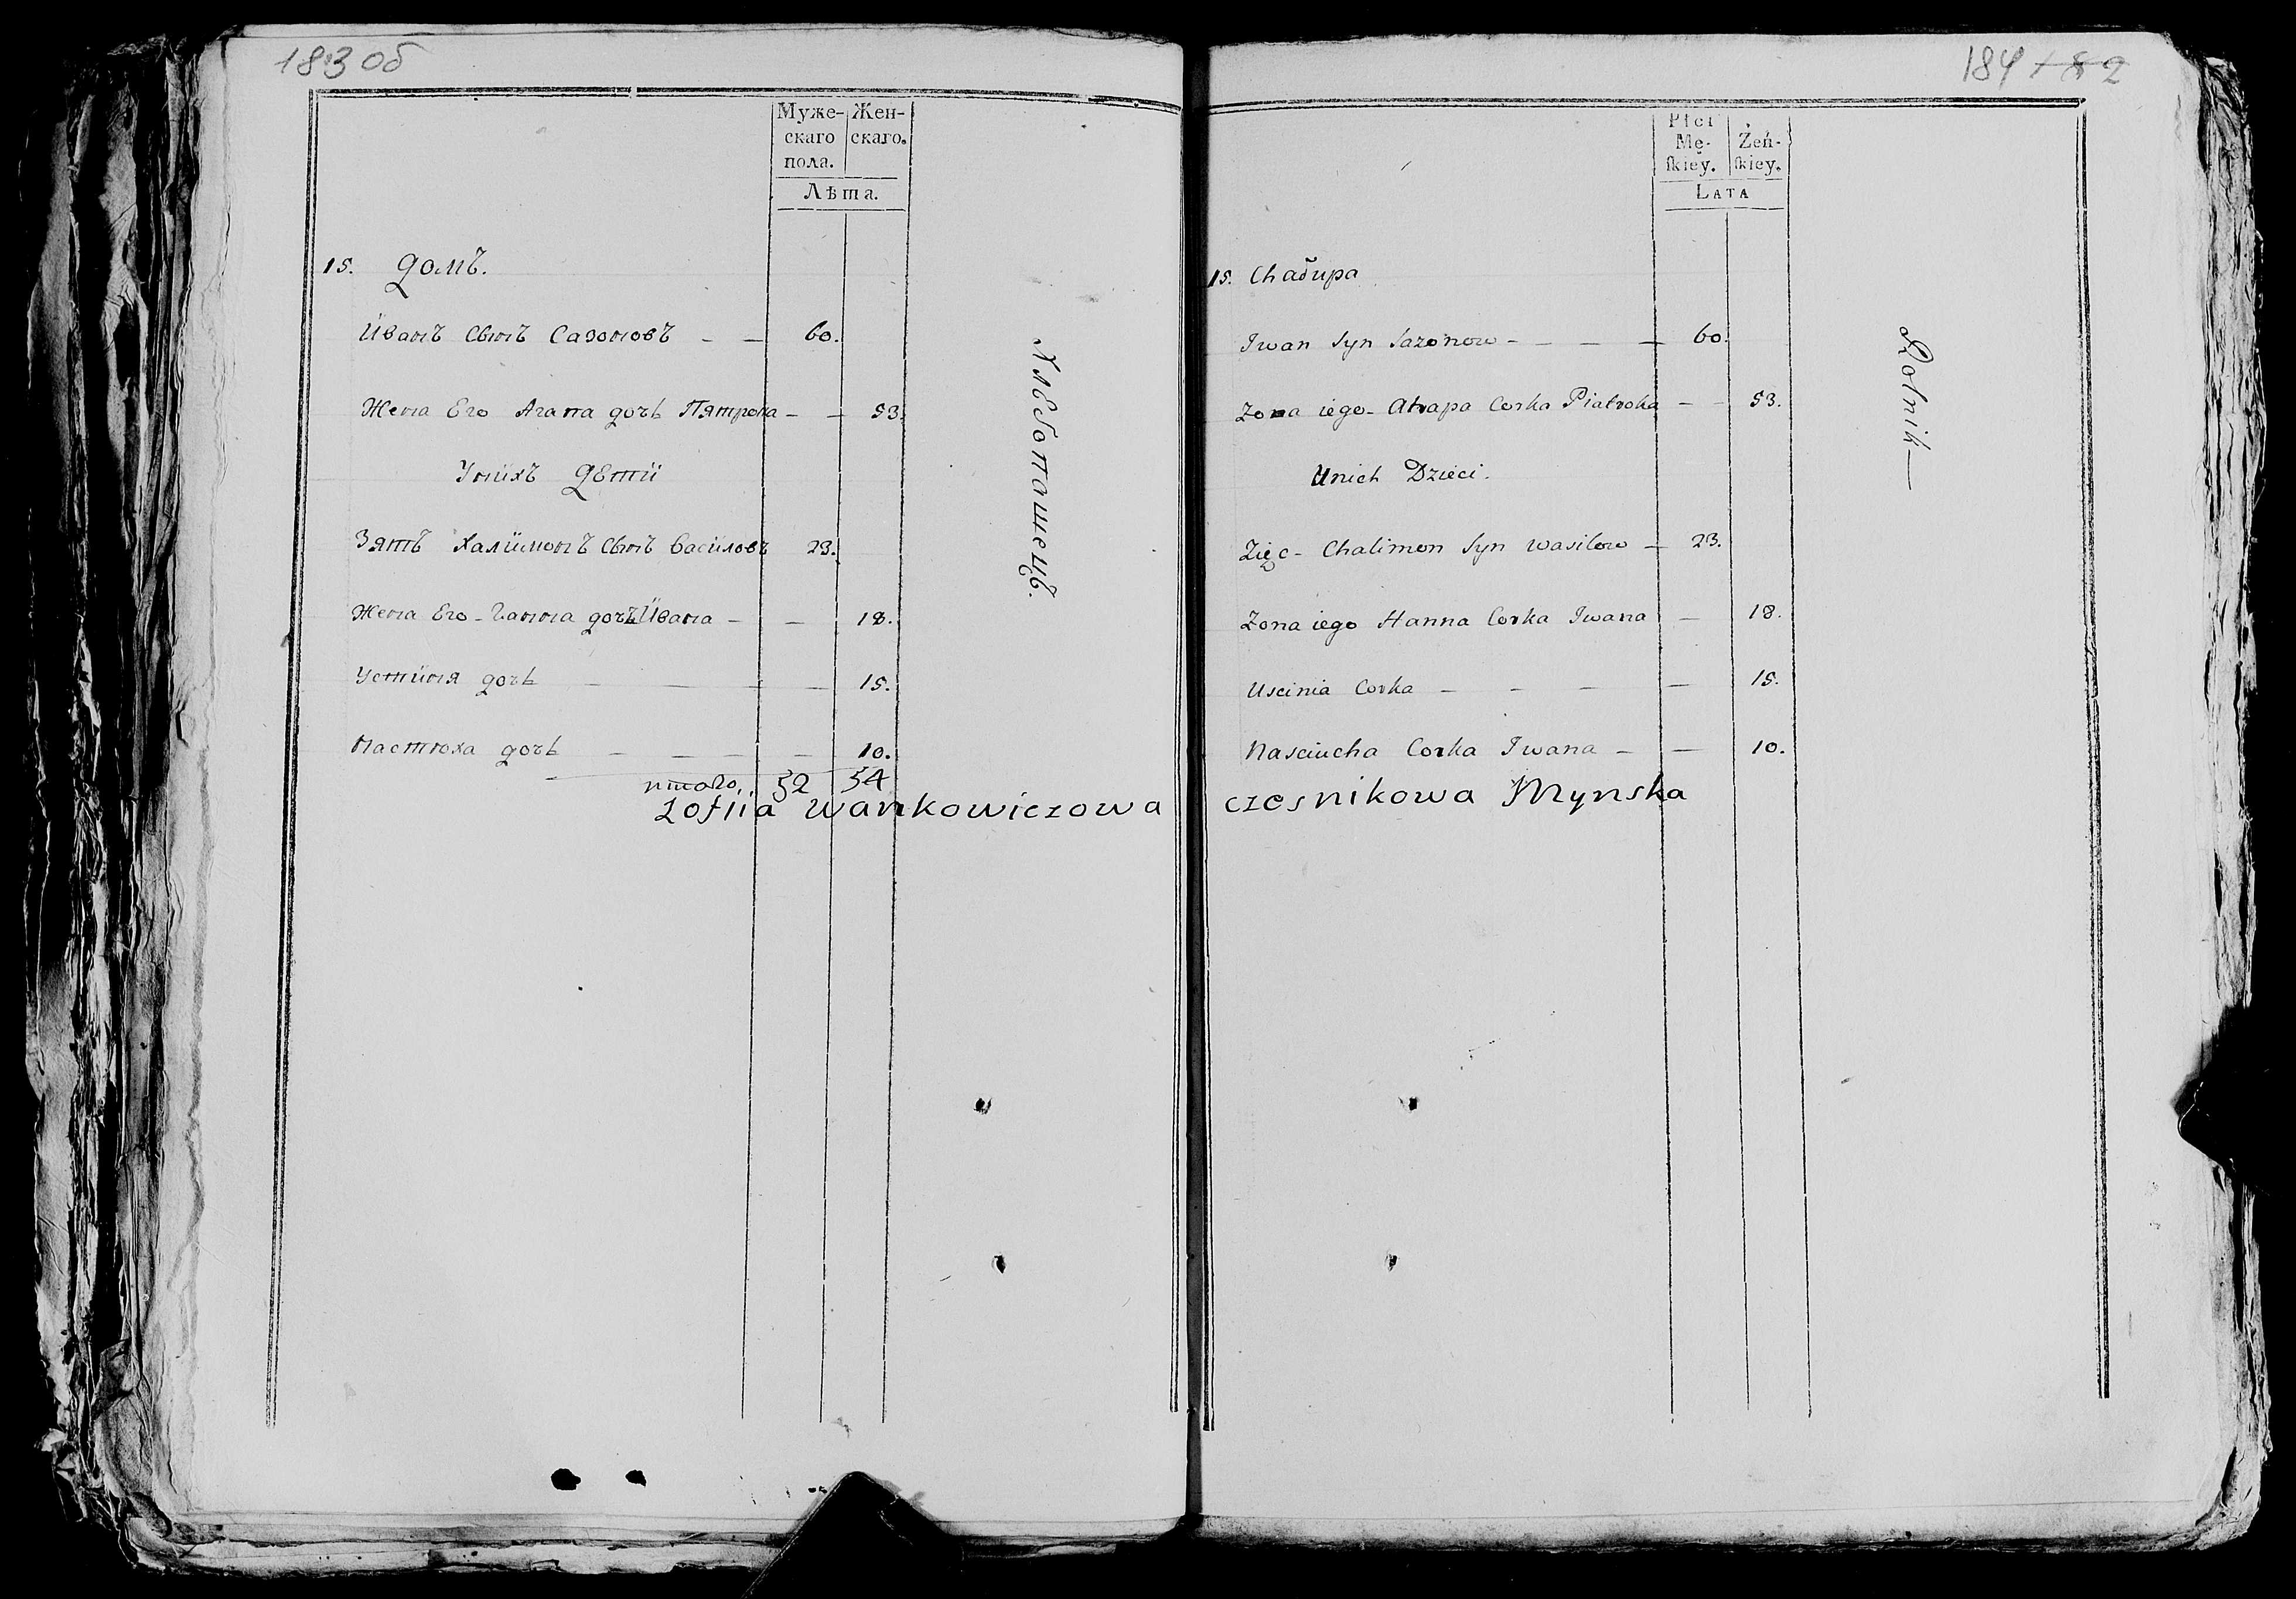 183 об
Муже- Жен-
скаго скаго.
пола.
Лѣта.
15. домъ.
Иванъ сынъ Сазоновъ - - 60.
Жена Его Агапа дочь Пятрока - - 53.
Унихъ Дети
Зять Халимонъ сынъ Василовъ 23.
Жена Его - Ганна дочь Ивана - - 18.
Устиня дочь - - - - 15.
Настюха дочь - - - - 10.
итого, 52 54
Zofiia Wankowiczowa
Хлебопашецъ.
184 182
Płci
Mę- Żeń-
ſkiey. ſkiey.
LATA
15. Chałupa
Iwan Syn Sazonow - - - - 60.
Zona iego - Ahapa Corka Piatroka - - 53.
Unich Dzieci.
Zięc - Chalimon Syn Wasilow - 23.
Zona iego Hanna Corka Iwana - 18.
Uscinia Corka - - - - 15.
Nasciucha Corka Iwana - - 10.
czesnikowa Mynska
Rolnik -